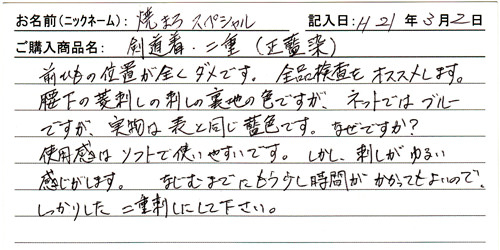 お名前(ニックネーム): 焼まろスペシャル 記入日: H21年3月2日
ご購入商品名: 剣道着・二重(正藍染)
前ひもの位置が全くダメです。全品検査をオススメします。
腰下の菱刺しの刺しの裏地の色ですが、ネットではブルー
ですが、実物は表と同じ藍色です。なぜですか?
使用感はソフトで使いやすいです。しかし、刺しがゆるい
感じがします。なじむまでにもう少し時間がかかってもよいので、
しっかりした二重刺しにして下さい。